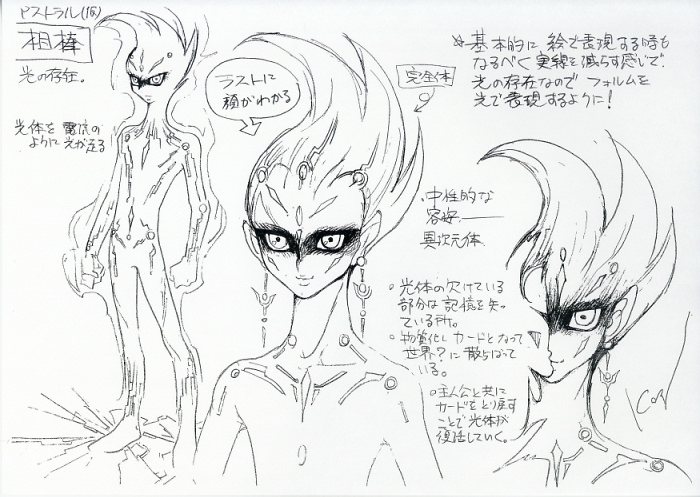 アストラル(仮)
相棒
光の存在。
光体を電流の
ように光が走る
ラストに
顔がわかる
完全体
☆基本的に絵で表現する時も
なるべく実線を減らす感じで、
光の存在なのでフォルムを
光で表現するように!
・中性的な
容姿、
異次元体
○光体の欠けている
部分は記憶を失っ
ている所。
○物質化しカードとなって
世界?に散らばって
いる。
○主人公と共に
カードをとり戻す
ことで光体が
復活していく。